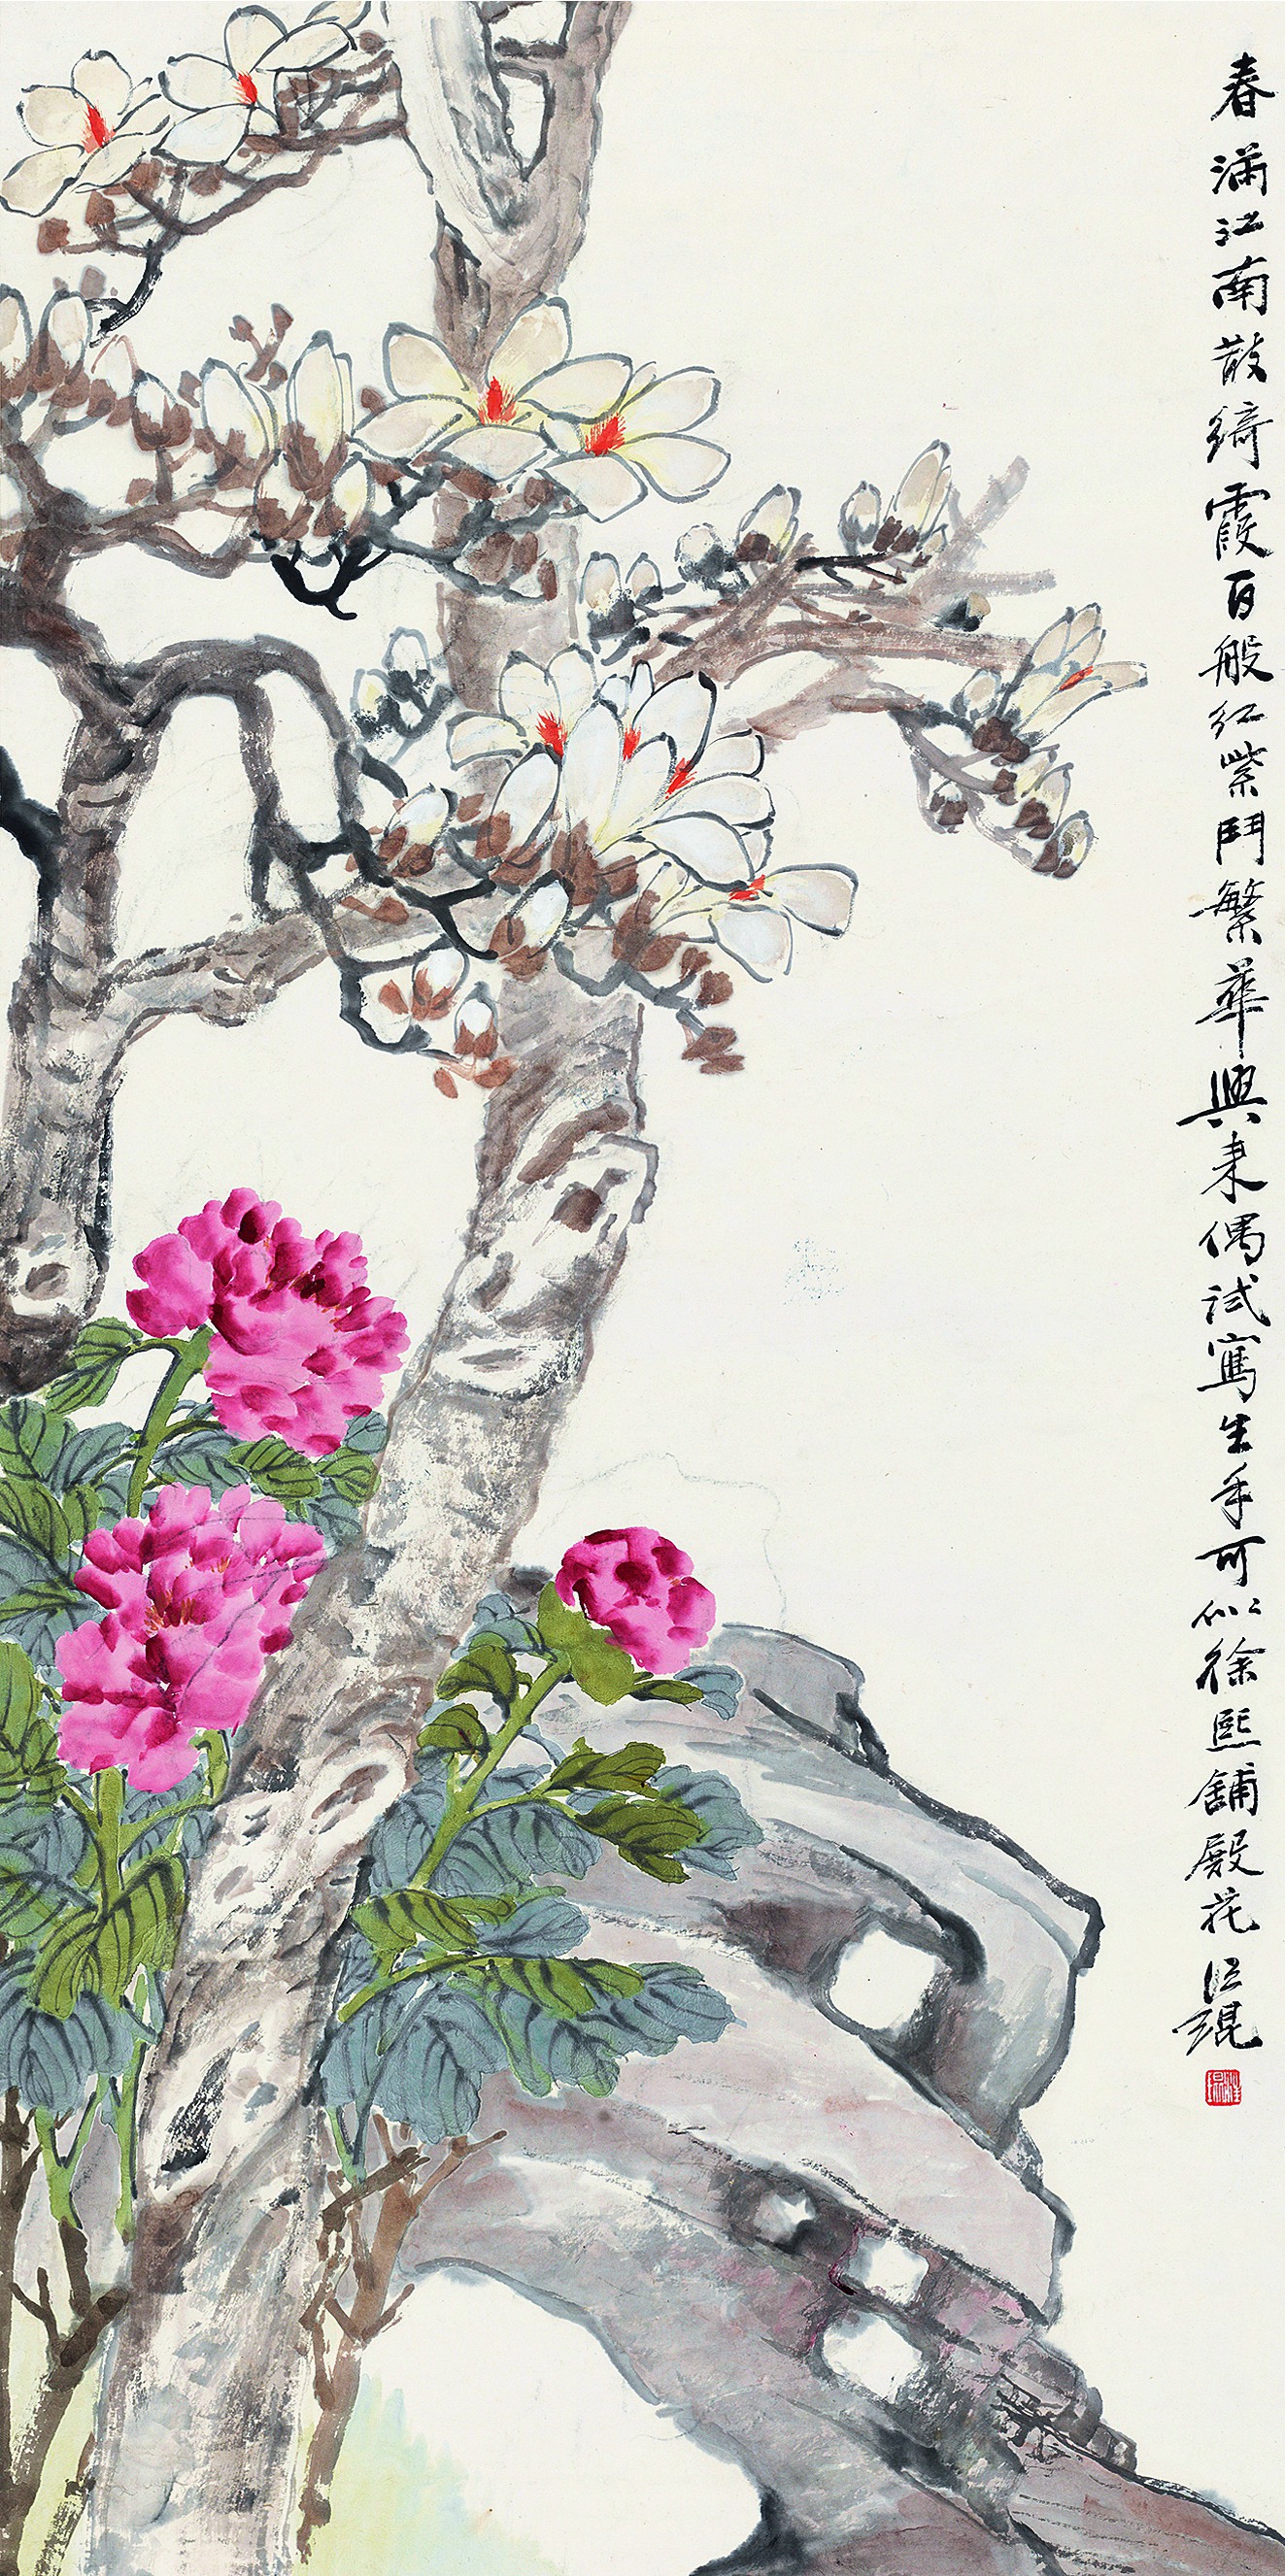 春滿江南散綺霞百般紅紫鬥繁華興来偶試寫生手可似徐熙鋪殿花 江琨